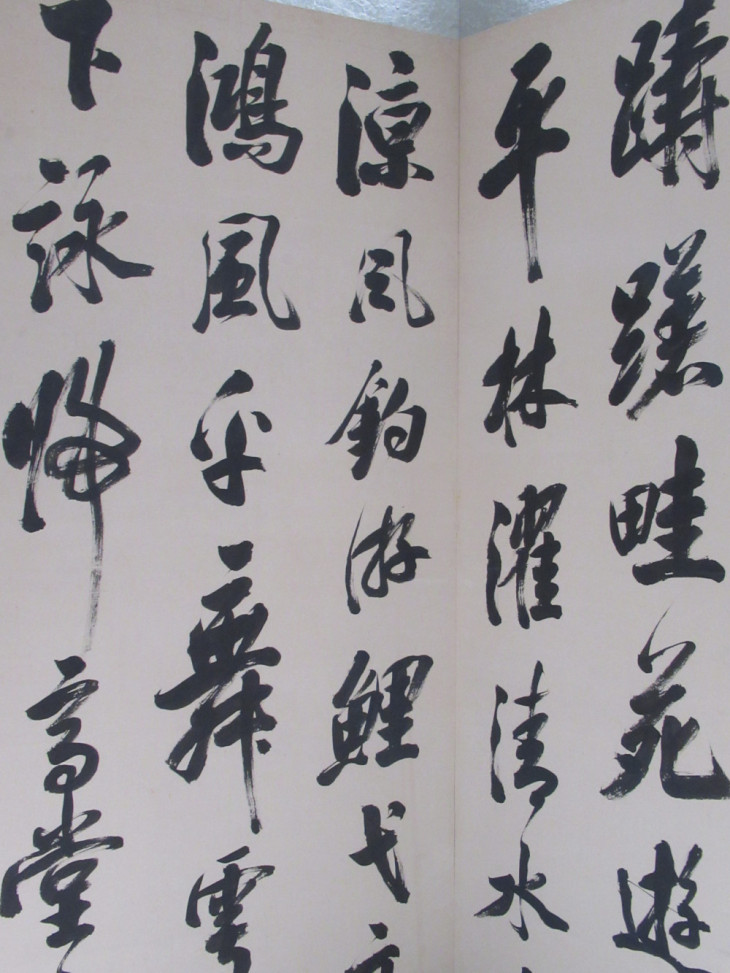 躊躇畦苑遊
平林濯清水
涼風釣游鯉弋高
鴻風乎舞雩
下詠帰高堂